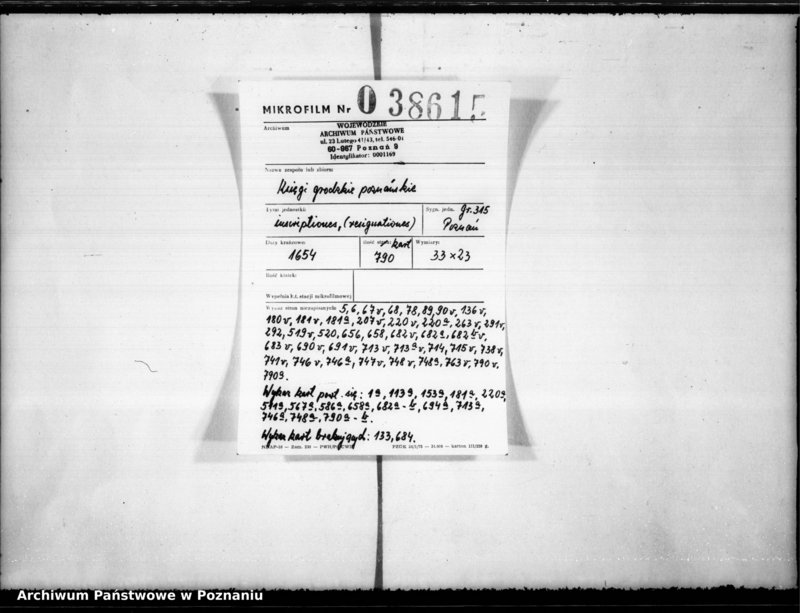 MIKROFILM Nr O 38615
Archiwum
WOJEWÓDZKIE
ARCHIWUM PAŃSTWOWE
ul. 23 Lutego 41/43, tel. 546-01
60-967 Poznań 9
Identyfikator: 0001169
Nazwa zespołu lub zbioru
Księgi grodzkie poznańskie
Tytuł jednostki:
Sygn. jedn. Gr. 315
inscriptiones, (resignationes)
Poznań
Daty krańcowe:
Ilość stron: kart
Wymiary:
1654
790
33 x 23
Ilość klatek:
Wypełnia k.t. stacji mikrofilmowej
Wykaz stron niezapisanych: 5, 6, 67v, 68, 78, 89, 90v, 136v,
180v, 181v, 181a, 207v, 220v, 220a, 263v, 291v,
292, 519v, 520, 656, 658, 682v, 682a, 682bv,
683v, 690v, 691v, 713v, 713av, 714, 715v, 738v,
741v, 746v, 746a, 747v, 748v, 748a, 763v, 790v,
790a.
Wykaz kart powt. się: 1a, 113a, 153a, 181a, 220a,
511a, 567a, 586a, 658a, 682a-b, 694a, 713a,
746a, 748a, 790a-b.
Wykaz kart brakujących: 133, 684.
Archiwum Państwowe w Poznaniu